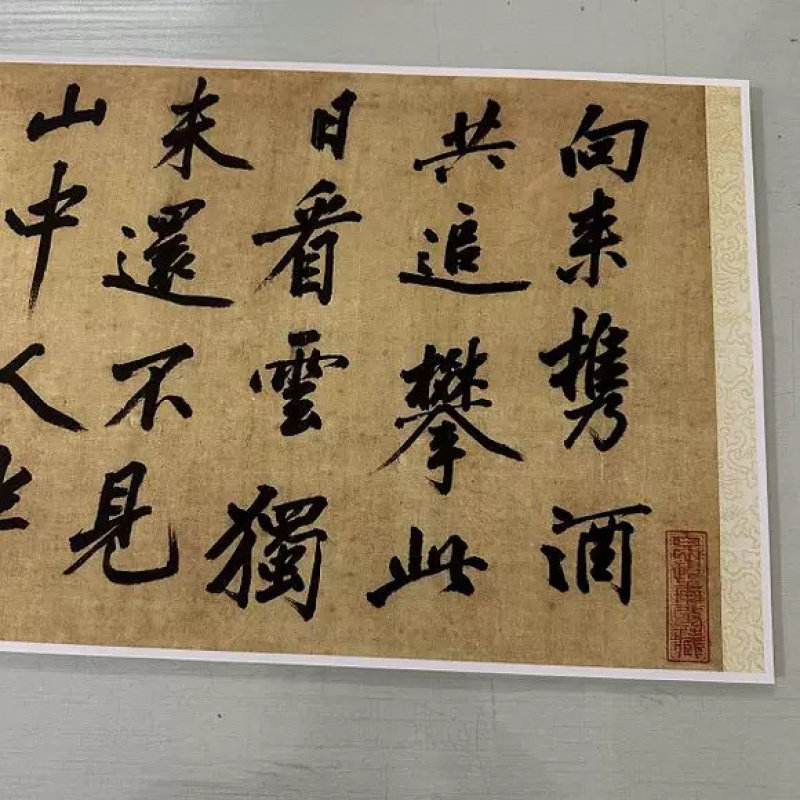 向来携酒
共追攀此
日看雲獨
未還不見
山中人